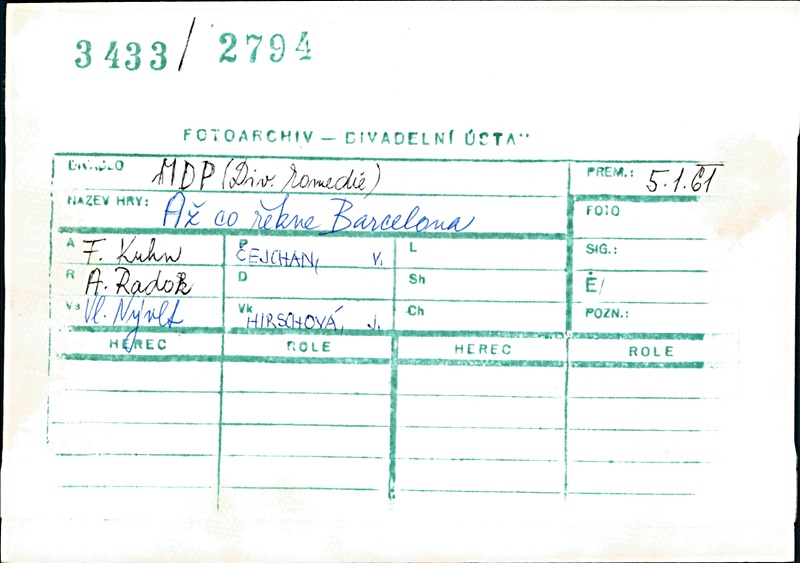 3433/ 2794
FOTOARCHIV — DIVADELNÍ ÚSTA
DIVADLO MDP (Div. komedie) PREM.: 5.1.61
NÁZEV HRY: Až co řekne Barcelona FOTO
A F. Kuhn P ČEJCHAN, V. L SIG.:
R A. Radok D Sh Ě/
Vs Vl. Nývlt Vk HIRSCHOVÁ, J. Ch POZN.:
HEREC ROLE HEREC ROLE